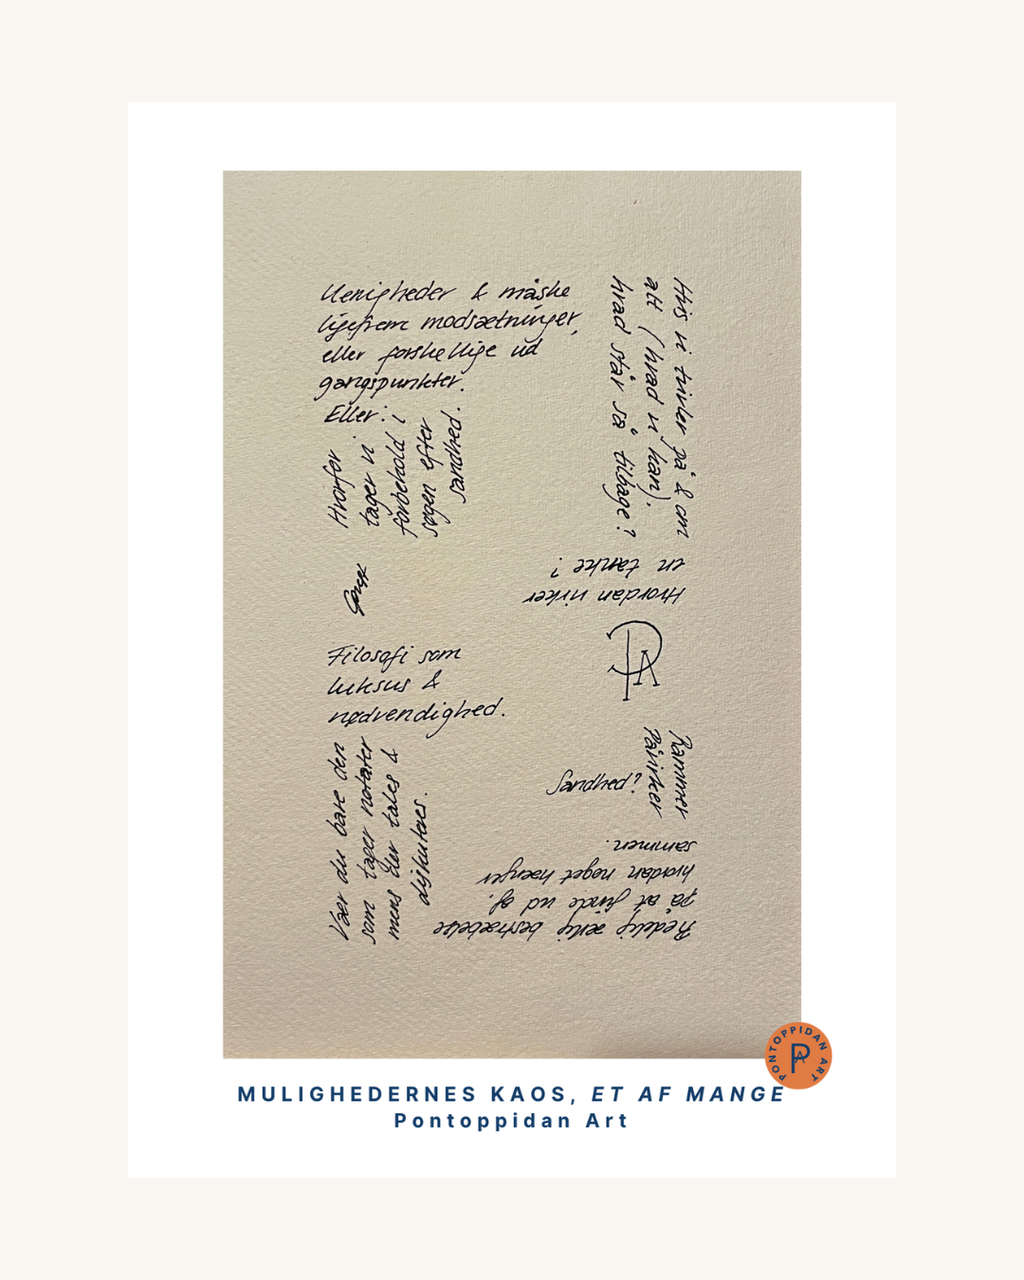 Uenigheder & måske
ligefrem modsætninger,
eller forskellige ud
gangspunkter.
Eller:
Hvorfor
tager vi
forbehold i
søgen efter
sandhed.
Hvis vi tvivler på & om
alt (hvad vi kan).
hvad står så tilbage?
Hvordan virker
en tanke?
Filosofi som
luksus &
nødvendighed.
Rammer
Påvirker
Sandhed?
Vær du bare den
som tager notater
mens der tales &
diskuteres.
Redelig ærlig bestræbelse
på at finde ud af.
hvordan noget hænger
sammen.
PONTOPPIDAN ART
PA
MULIGHEDERNES KAOS, ET AF MANGE
Pontoppidan Art